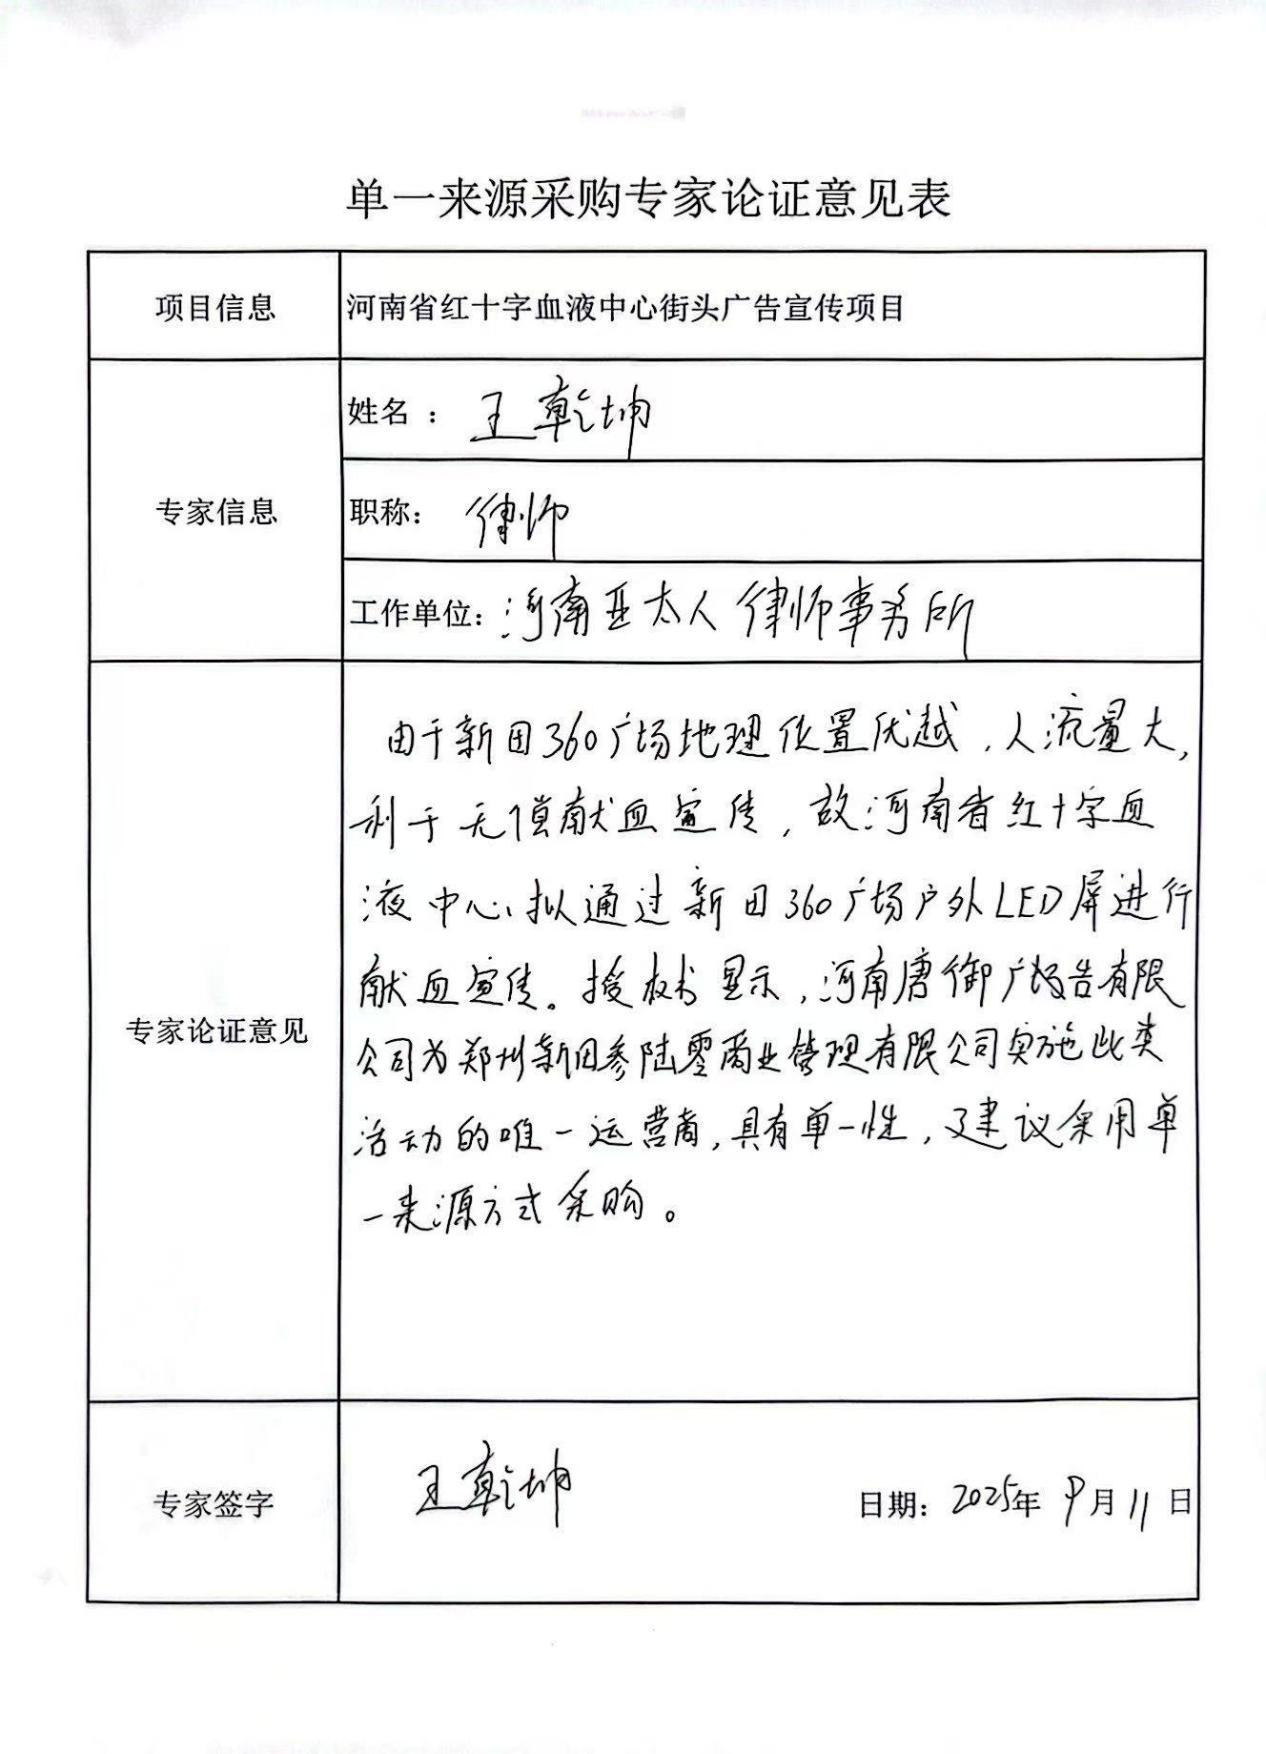 单一来源采购专家论证意见表
项目信息
河南省红十字血液中心街头广告宣传项目
专家信息
姓名：王乾坤
职称：律师
工作单位：河南亚太人律师事务所
专家论证意见
由于新田360广场地理位置优越，人流量大，
利于无偿献血宣传，故河南省红十字血
液中心拟通过新田360广场户外LED屏进行
献血宣传。授权书显示，河南唐御广场告有限
公司为郑州新田参陆零商业管理有限公司实施此类
活动的唯一运营商，具有单一性，建议采用单
一来源方式采购。
专家签字
王乾坤
日期：2025年9月11日